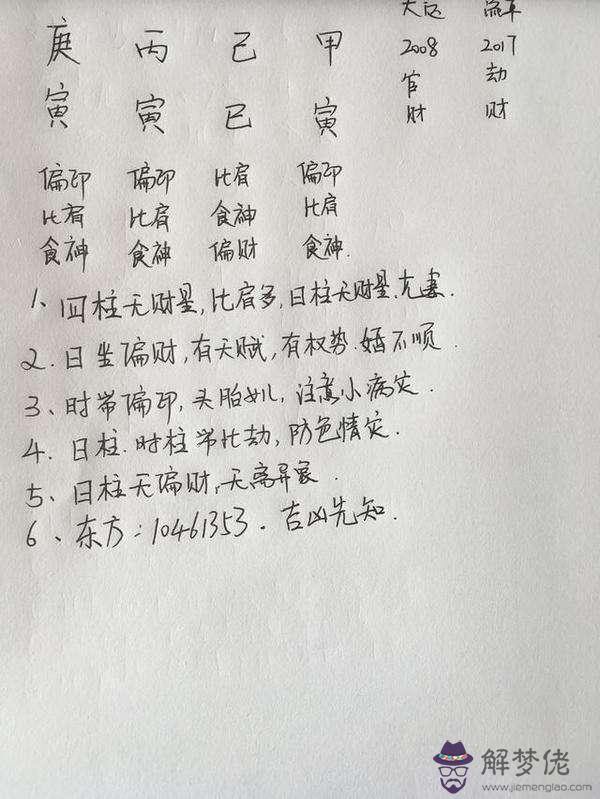 大运 流年
庚 丙 己 甲 2008 2017
官 劫
寅 寅 巳 寅 财 财
偏印 偏印 比肩 偏印
比肩 比肩 食神 比肩
食神 食神 偏财 食神.
1、四柱无财星,比肩多,日柱无财星.克妻.
2.日坐偏财,有天赋,有权势.婚不顺.
3、时带偏印,头胎女儿,注意小病灾.
4、日柱.时柱带比劫,防色情灾.
5、日柱无偏财,无离异象.
6、东方:10461353.吉凶先知.
解梦佬
www.jiemenglao.com